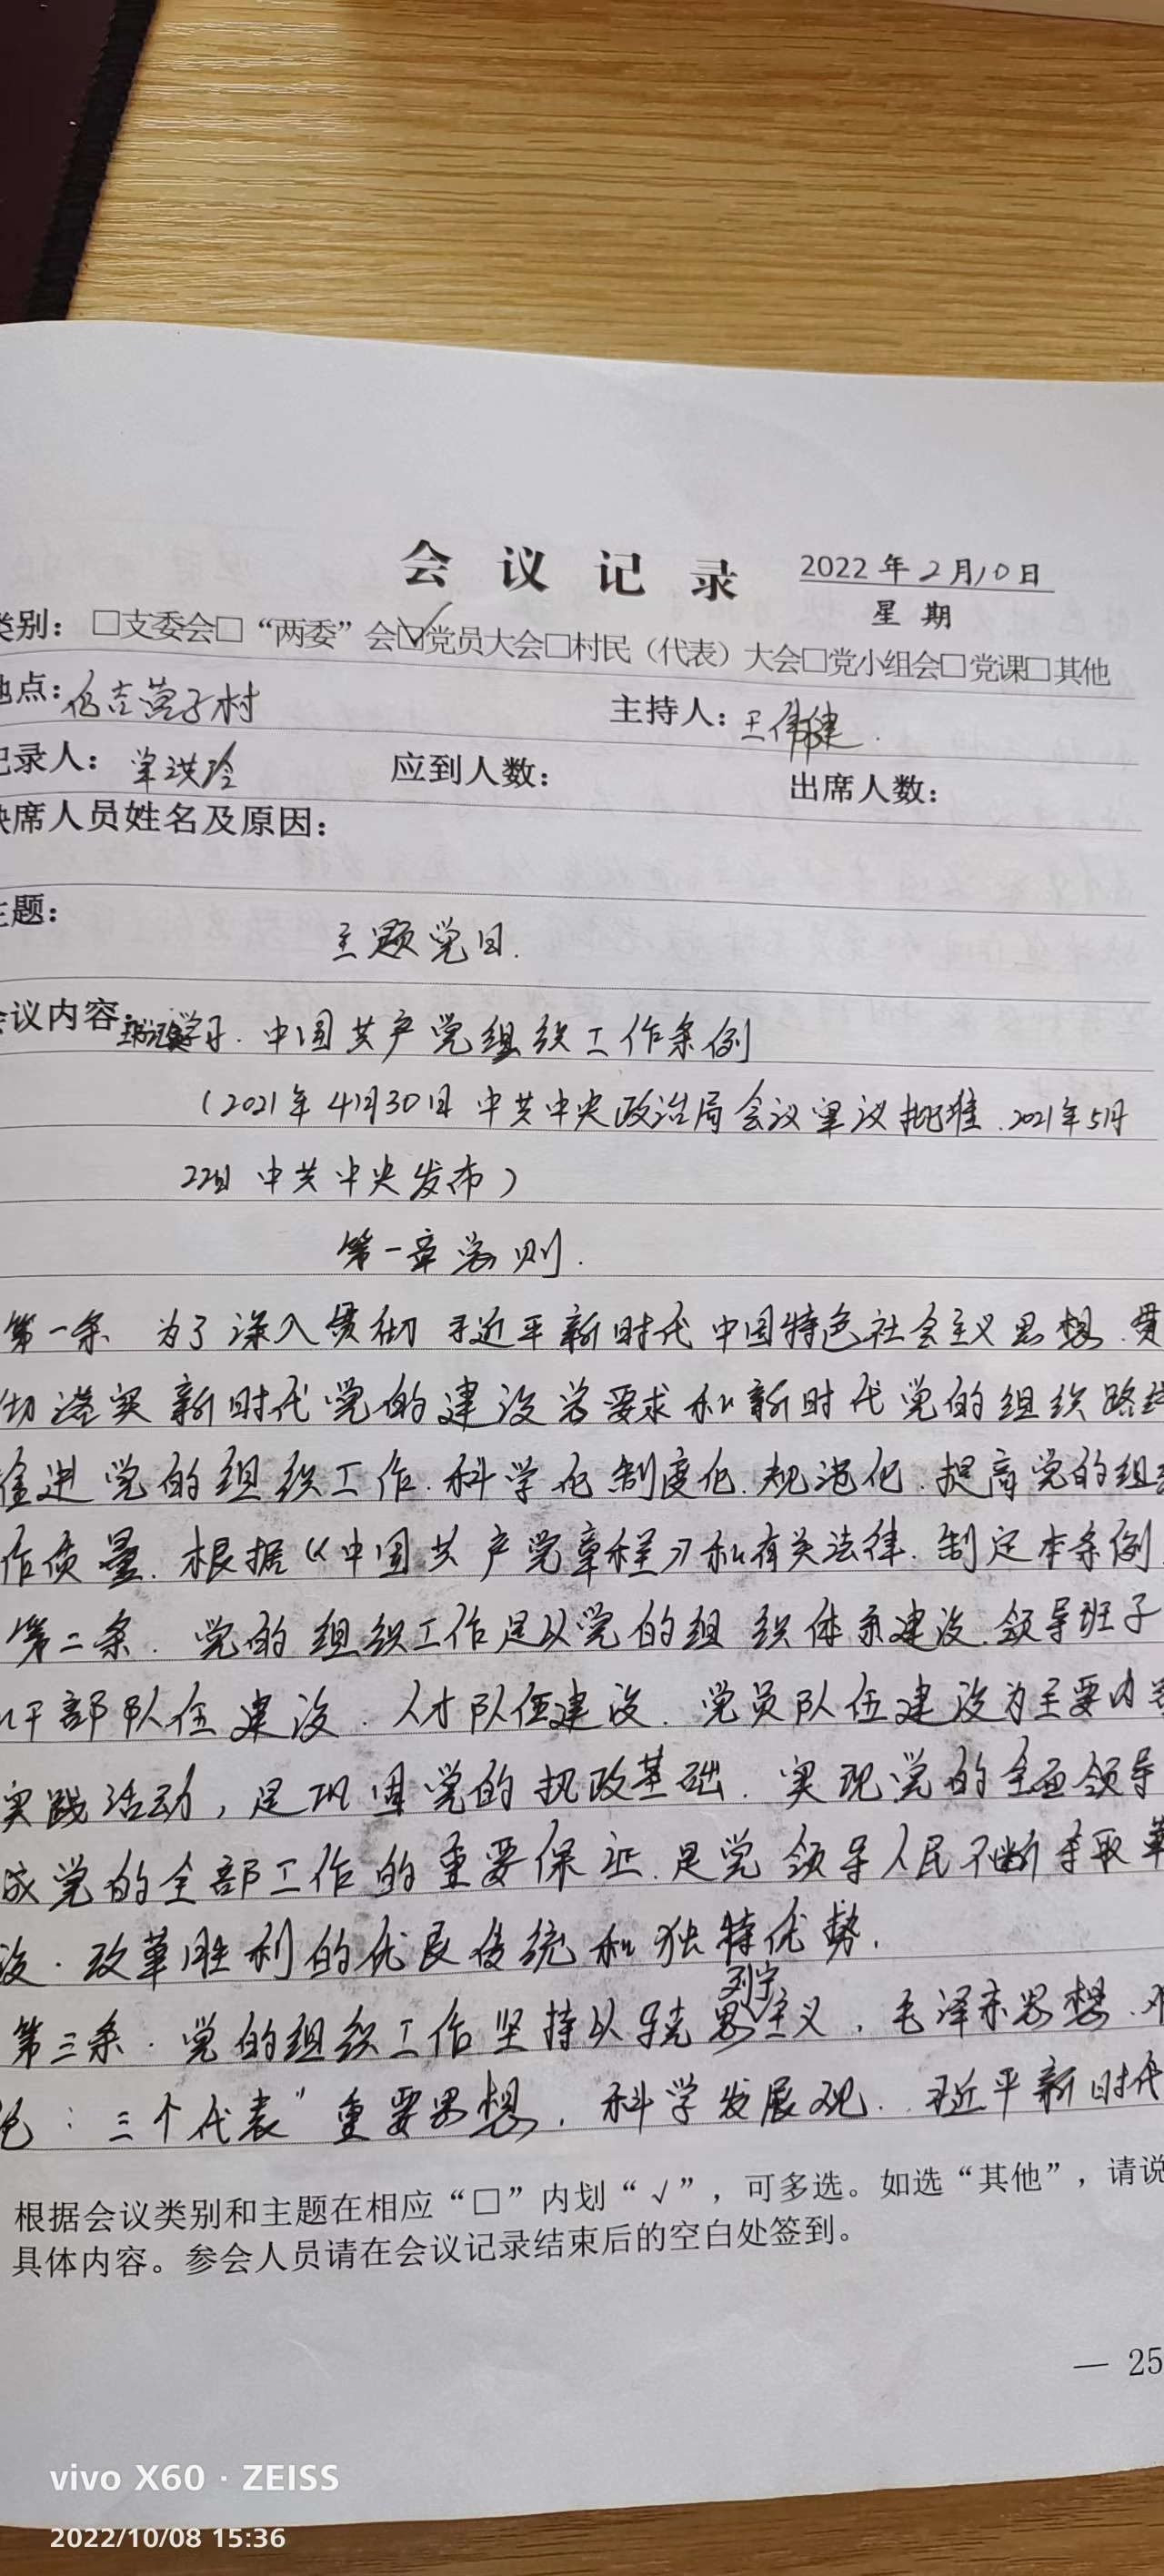 会议记录 2022年2月10日
星期
类别：□支委会□“两委”会☑党员大会□村民（代表）大会□党小组会□党课□其他
地点：伍吉营子村 主持人：王伟健.
记录人：单洪玲 应到人数： 出席人数：
缺席人员姓名及原因：
主题：
主题党日.
会议内容：学习.中国共产党组织工作条例
（2021年4月30日 中共中央政治局会议审议批准.2021年5月
22日 中共中央发布）
第一章总则.
第一条 为了深入贯彻习近平新时代中国特色社会主义思想.贯
彻落实新时代党的建设总要求和新时代党的组织路线
推进党的组织工作.科学化制度化.规范化.提高党的组织
作质量.根据《中国共产党章程》和有关法律.制定本条例.
第二条.党的组织工作是以党的组织体系建设.领导班子
和干部队伍建设.人才队伍建设.党员队伍建设为主要内容
实践活动，是巩固党的执政基础.实现党的全面领导
成党的全部工作的重要保证.是党领导人民不断夺取革
设.改革胜利的优良传统和独特优势.
列宁
第三条.党的组织工作坚持以马克思主义，毛泽东思想.邓
论：三个代表”重要思想，科学发展观.习近平新时代
根据会议类别和主题在相应“□”内划“√”，可多选。如选“其他”，请说
具体内容。参会人员请在会议记录结束后的空白处签到。
— 25
vivo X60 · ZEISS
2022/10/08 15:36